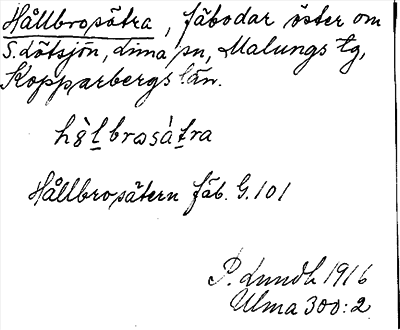 Hållbrosätra, fäbodar öster om
S. Lötsjön, Lima sn, Malungs tg,
Kopparbergs län.
hỳl̠brosàt̠ra
Hållbrosätern fäb. G. 101
P. Lundh 1916
Ulma 300:2